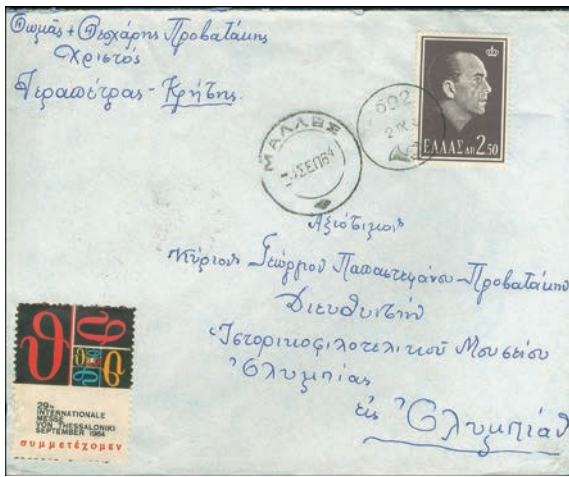 Θωμᾶς + Θεοχάρης Προβατάκης
Χριστός
Ἱεραπέτρας - Κρήτης.
602
ΜΑΛΛΕΣ
ΣΕΠ 64
ΕΛΛΑΣ ΔΡ 2 50
Ἀξιότιμον
Κύριον Γεώργιον Παπαστεφάνου - Προβατάκην
Διευθυντὴν
Ἱστορικοφιλοτελικοῦ Μουσείου
Ὀλυμπίας
εἰς Ὀλυμπίαν
29th
INTERNATIONALE
MESSE
VON THESSALONIKI
SEPTEMBER 1964
συμμετέχομεν